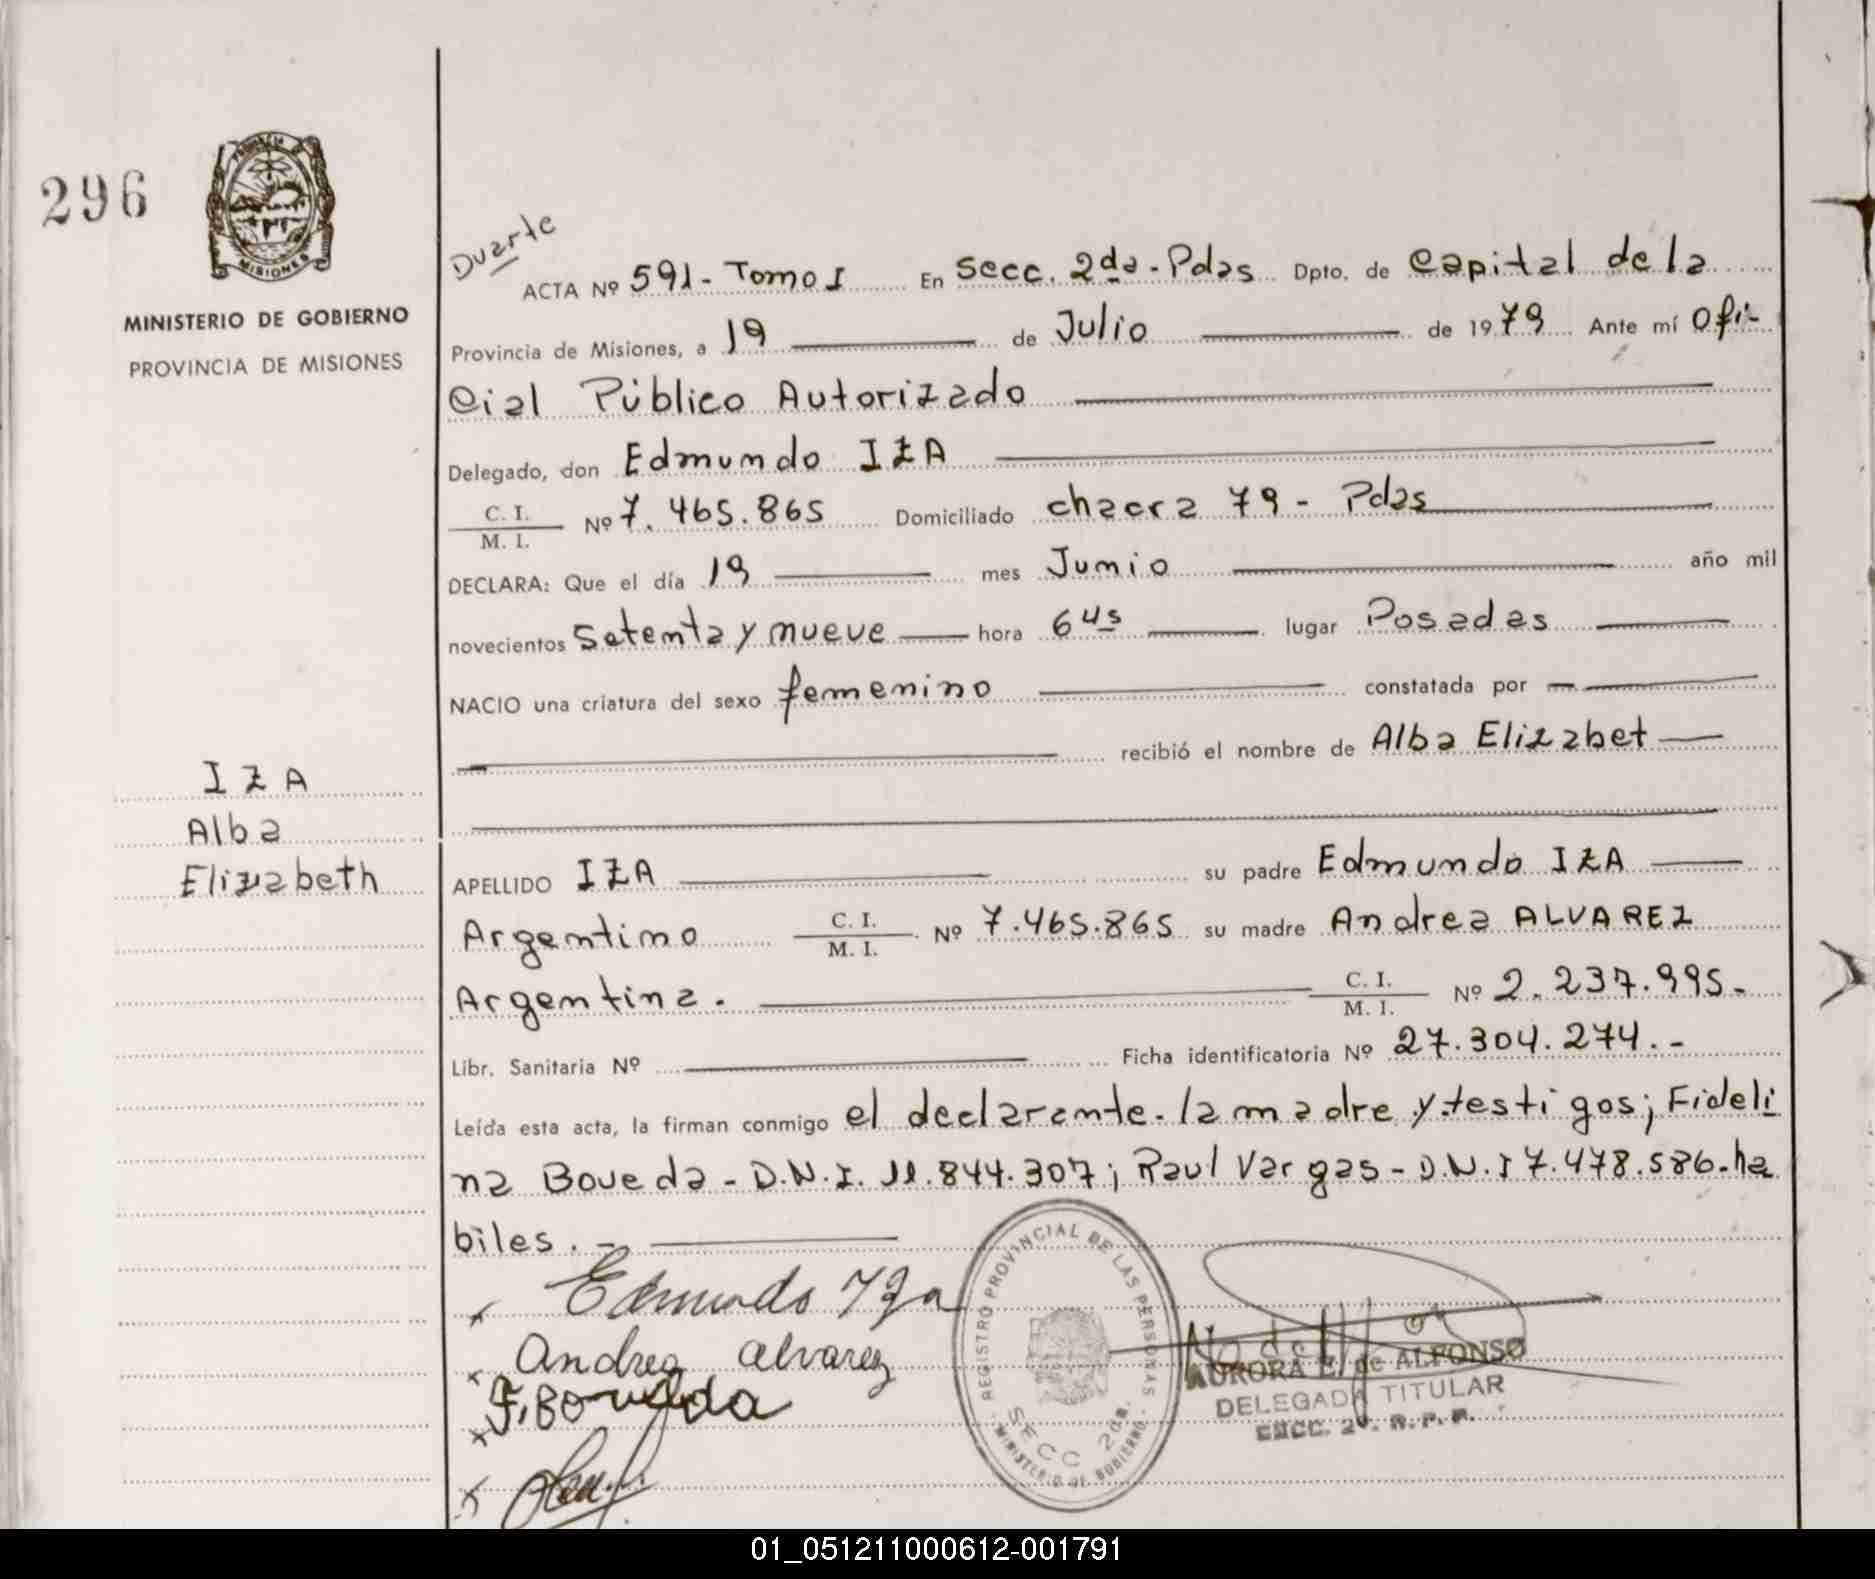 296
PROVINCIA DE
MISIONES
MINISTERIO DE GOBIERNO
PROVINCIA DE MISIONES
IZA
Alba
Elizabeth
Duarte
ACTA Nº 591- Tomo I En Secc. 2da - Pdas Dpto. de Capital de la
Provincia de Misiones, a 19 de Julio de 1979 Ante mí Ofi-
cial Público Autorizado
Delegado, don Edmundo IZA
C. I.
M. I. Nº 7.465.865 Domiciliado chacra 79 - Pdas
DECLARA: Que el día 19 mes Junio año mil
novecientos Setenta y nueve hora 6 us lugar Posadas
NACIO una criatura del sexo femenino constatada por
recibió el nombre de Alba Elizabet
APELLIDO IZA su padre Edmundo IZA
Argentino C. I.
M. I. Nº 7.465.865 su madre Andrea ALVAREZ
Argentina. C. I.
M. I. Nº 2.237.995-
Libr. Sanitaria Nº Ficha identificatoria Nº 27.304.274.-
Leída esta acta, la firman conmigo el declarante-la madre y testigos; Fideli
na Boveda - D.N.I. 11.844.307; Raul Vargas - D.N.I 7.478.586-ha
biles.-
Edmundo Iza
Andrea Alvarez
F. Boveda
REGISTRO PROVINCIAL DE LAS PERSONAS
SECC 2da.
MINISTERIO DE GOBIERNO
AURORA de ALFONSO
DELEGADA TITULAR
SECC. 2ª. R. P. P.
01_051211000612-001791